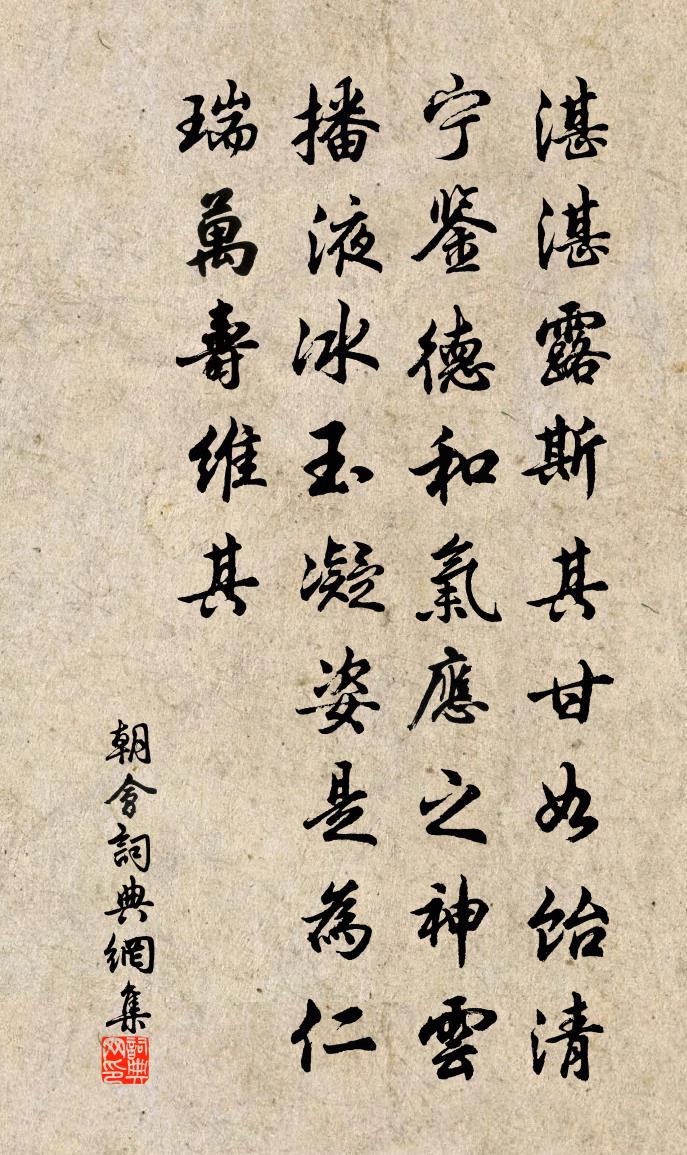 湛湛露斯其甘如饴清
宁鉴德和氣應之神雲
播液冰玉凝姿是為仁
瑞萬壽維其
朝會詞典網集
詞典网印